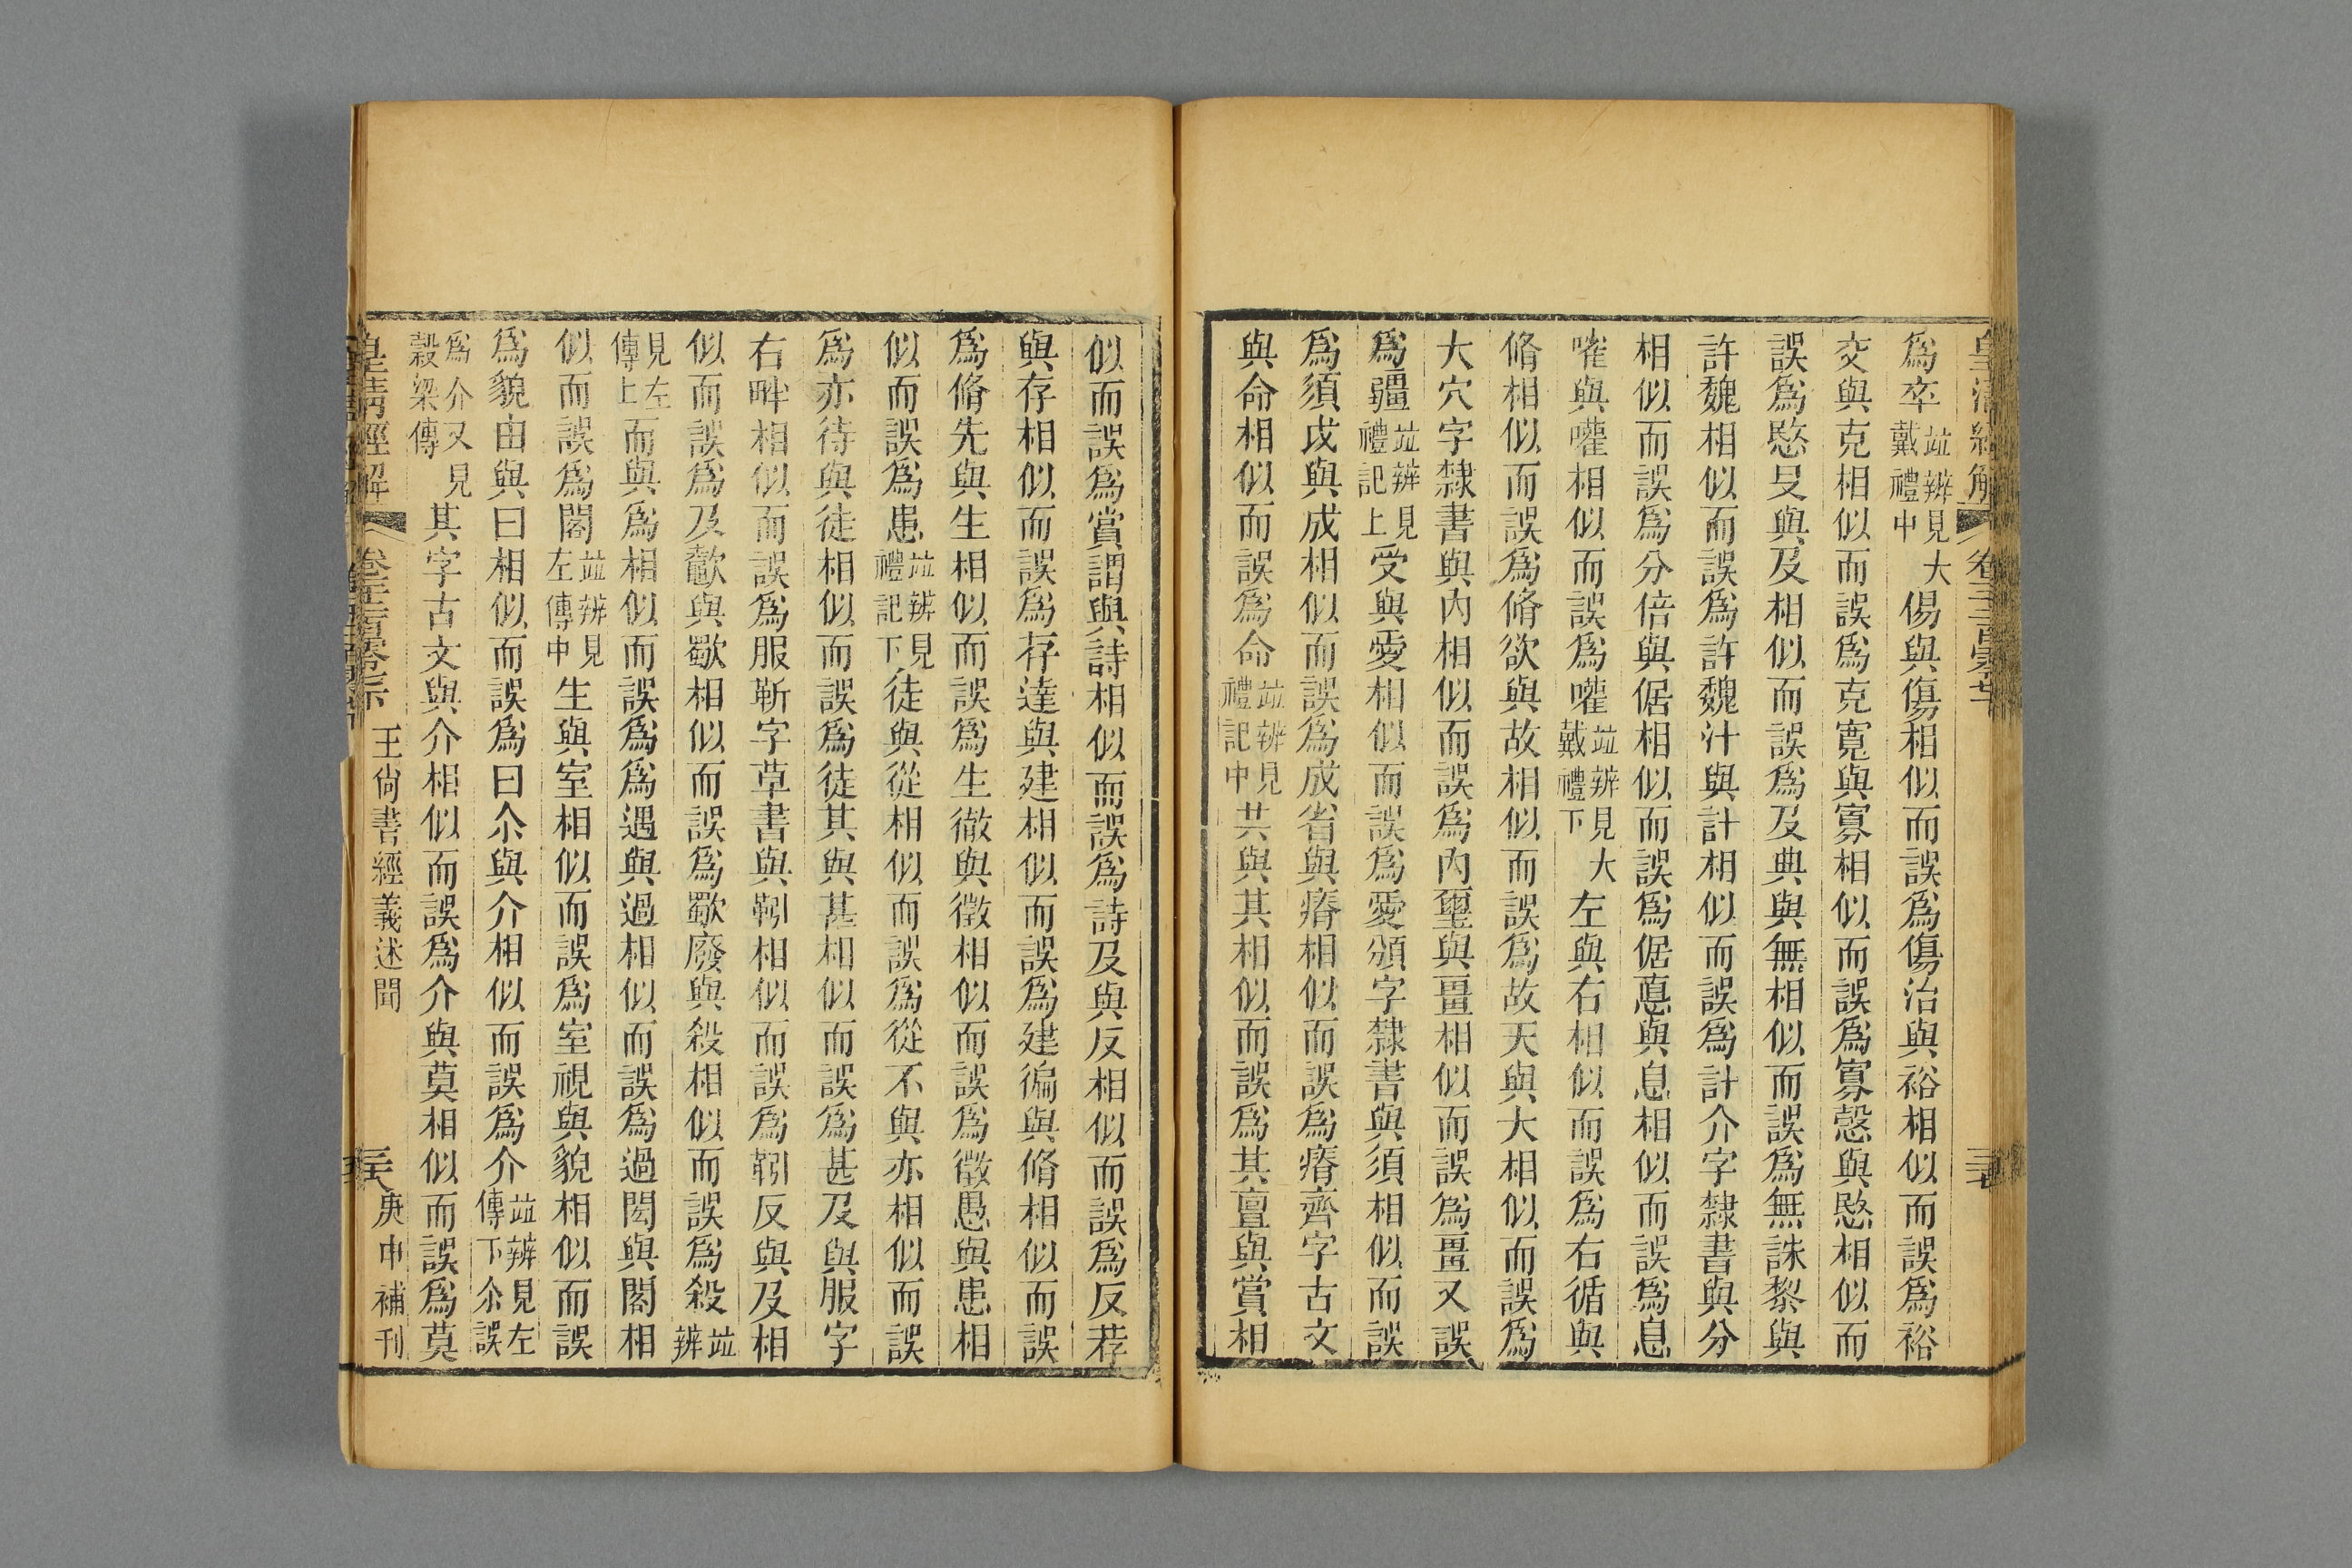 皇清經解 卷千二百零十 三七
爲卒竝辨見大戴禮中傷與傷相似而誤爲傷治與裕相似而誤爲裕
交與克相似而誤爲克寬與寡相似而誤爲寡愨與愍相似而
誤爲愍𠬝與及相似而誤爲及典與無相似而誤爲無誅黎與
許魏相似而誤爲許魏汁與計相似而誤爲計介字隸書與分
相似而誤爲分倍與倨相似而誤爲倨悳與息相似而誤爲息
嗺與嚾相似而誤爲嚾竝辨見大戴禮下左與右相似而誤爲右循與
脩相似而誤爲脩欲與故相似而誤爲故天與大相似而誤爲
大穴字隸書與內相似而誤爲內壐與畺相似而誤爲畺又誤
爲疆竝辨見禮記上受與愛相似而誤爲愛頒字隸書與須相似而誤
爲須戉與成相似而誤爲成省與瘠相似而誤爲瘠齊字古文
與命相似而誤爲命竝辨見禮記中共與其相似而誤爲其亶與賞相
似而誤爲賞謂與詩相似而誤爲詩及與反相似而誤爲反荐
與存相似而誤爲存達與建相似而誤爲建徧與脩相似而誤
爲脩先與生相似而誤爲生徹與徵相似而誤爲徵愚與患相
似而誤爲患竝辨見禮記下徒與從相似而誤爲從不與亦相似而誤
爲亦待與徒相似而誤爲徒其與甚相似而誤爲甚及與服字
右畔相似而誤爲服靳字草書與靷相似而誤爲靷反與及相
似而誤爲及歠與歜相似而誤爲歜廢與殺相似而誤爲殺竝辨
見左傳上而與爲相似而誤爲爲遇與過相似而誤爲過閎與閣相
似而誤爲閣竝辨見左傳中生與室相似而誤爲室視與貌相似而誤
爲貌由與曰相似而誤爲曰尒與介相似而誤爲介竝辨見左傳下尒誤
爲介又見穀梁傳其字古文與介相似而誤爲介與莫相似而誤爲莫
皇清經解 卷千二百零十 王尙書經義述聞 三八 庚申補刊